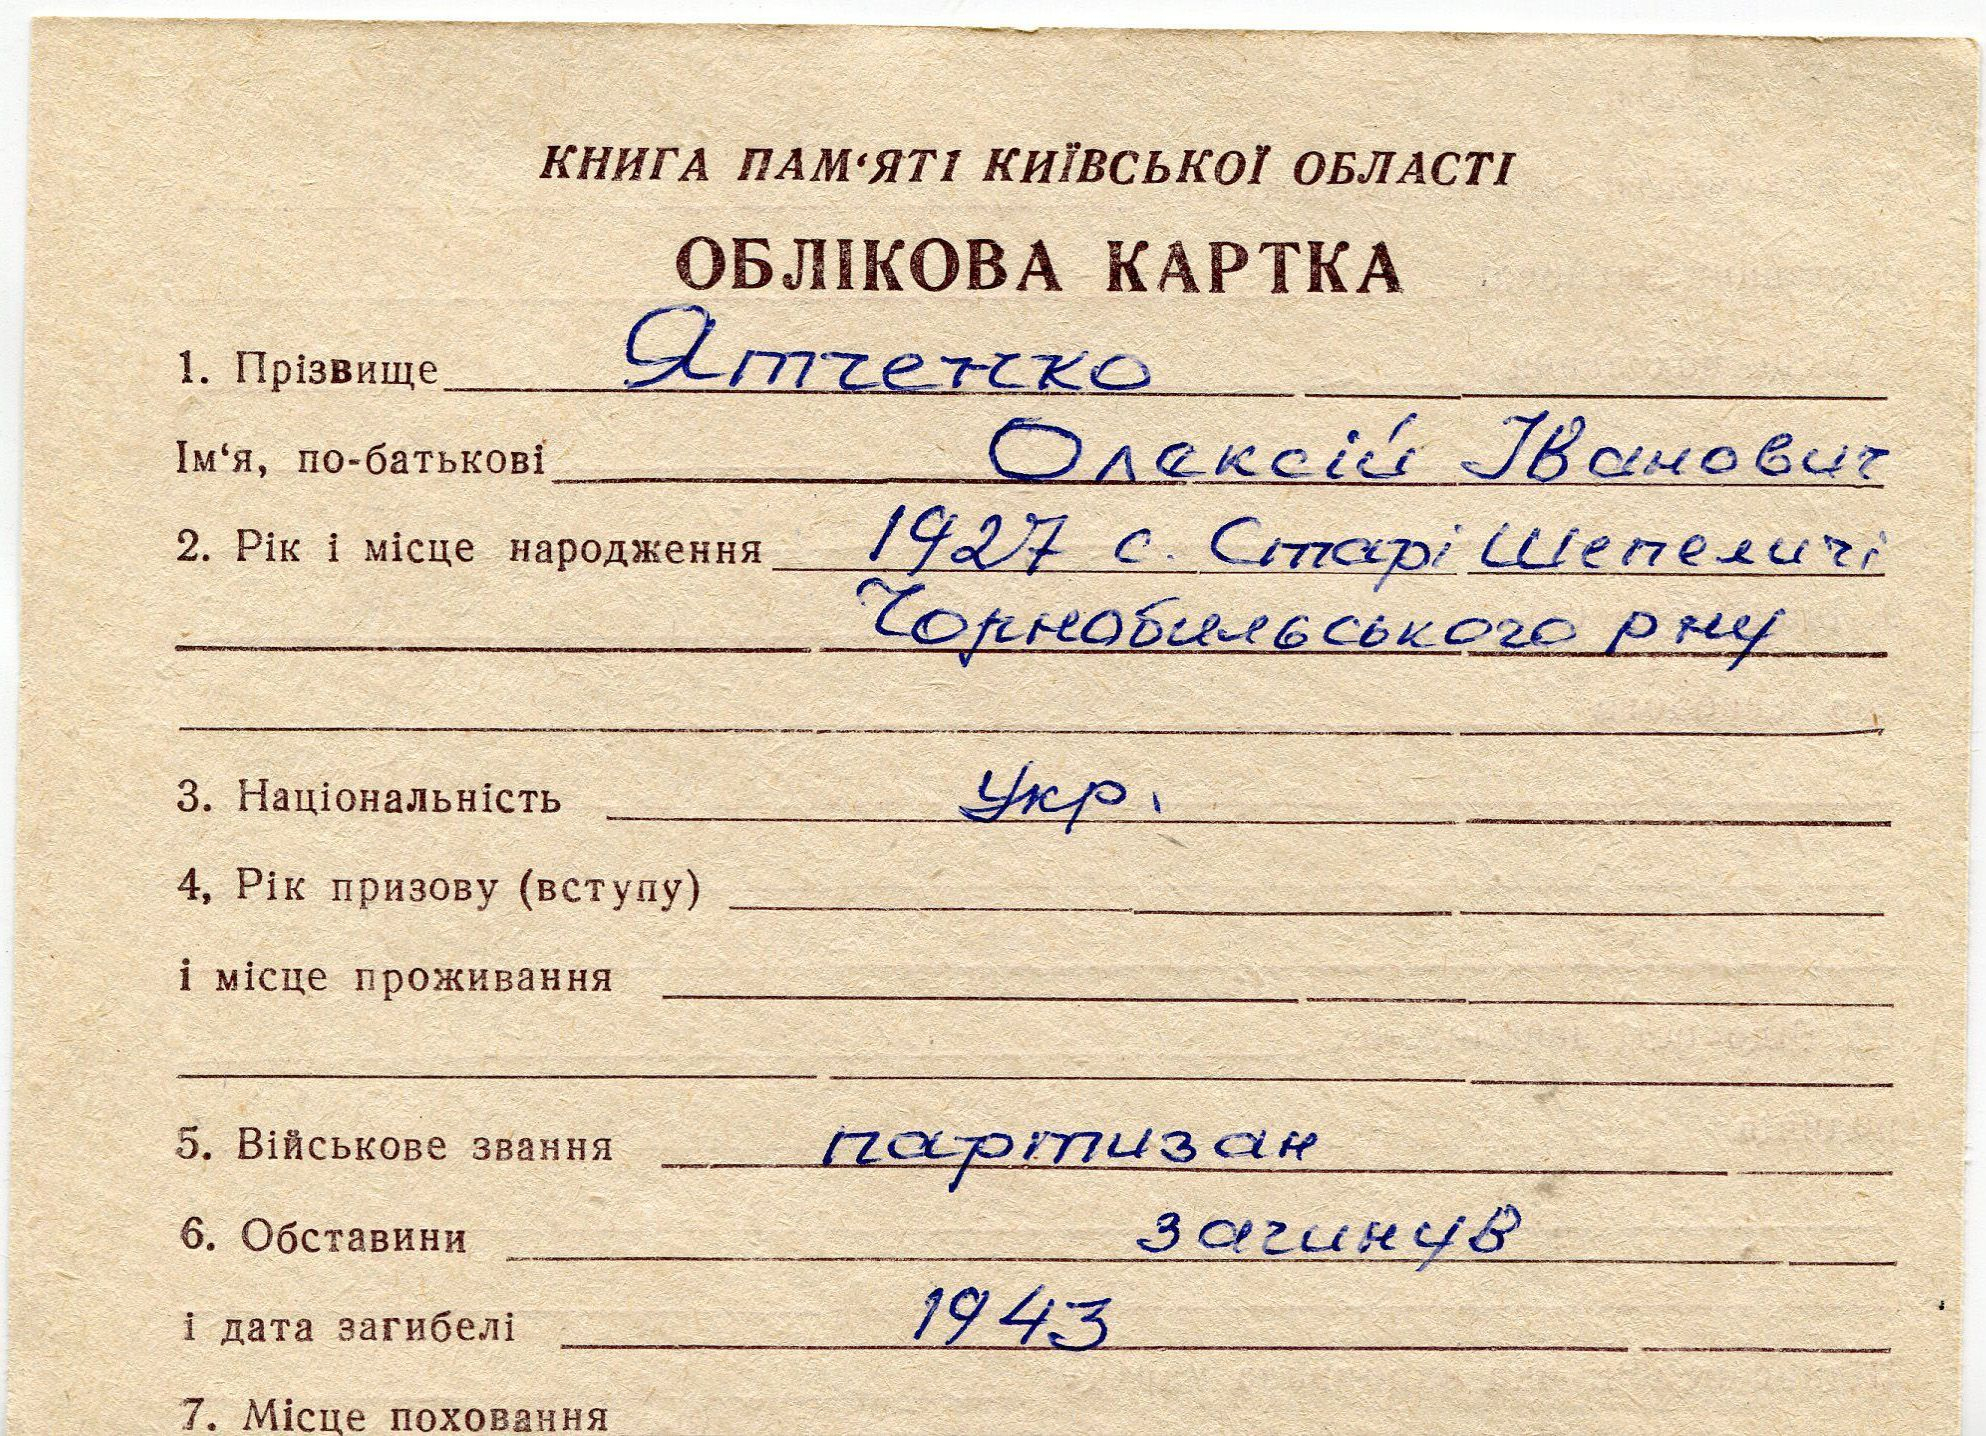 КНИГА ПАМ‘ЯТІ КИЇВСЬКОЇ ОБЛАСТІ
ОБЛІКОВА КАРТКА
1. Прізвище Ятченко
Ім‘я, по-батькові Олексій Іванович
2. Рік і місце народження 1927 с. Старі Шепеличі
Чорнобильського рну
3. Національність Укр.
4, Рік призову (вступу)
і місце проживання
5. Військове звання партизан
6. Обставини загинув
і дата загибелі 1943
7. Місце поховання